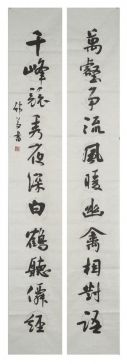 萬壑争流風暖幽禽相對語
千峰競秀夜深白鶴聽僊經